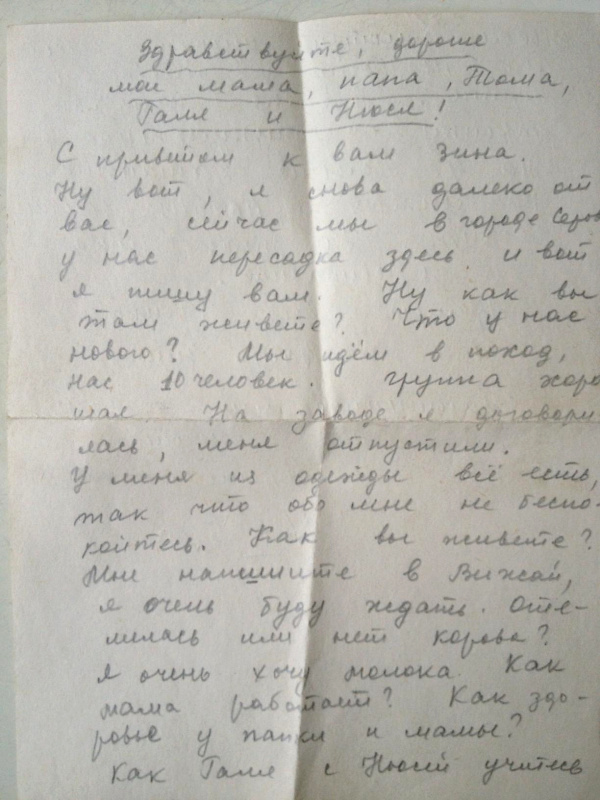 Здравствуйте, дорогие
мои мама, папа, Тома,
Галя и Нюся!
С приветом к вам Зина.
Ну вот, я снова далеко от
вас, сейчас мы в городе Серов
у нас пересадка здесь и вот
я пишу вам. Ну как вы
там живете? Что у нас
нового? Мы идём в поход,
нас 10 человек. группа хоро
шая На заводе я договори
лась, меня отпустили.
У меня из одежды всё есть,
так что обо мне не беспо-
койтесь. Как вы живете?
Мне напишите в Вижай,
я очень буду ждать. Оте-
лилась или нет корова?
Я очень хочу молока. Как
мама работает? Как здо-
ровье у папки и мамы?
Как Галя с Нюсей учитесь